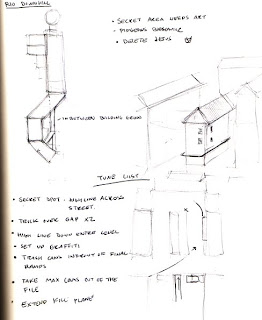 RIO DOWNHILL
- SECRET AREA NEEDS ART
- PIGEONS
- DELETE
INBETWEEN BUILDING
TUNE LIST
- SECRET SPOT - HIGHLINE ACROSS
STREET.
- TRICK OVER GAP X2
- HIGH LINE DOWN ENTER LEVEL
- SET UP GRAFFITI
- TRASH CANS INFRONT OF FINAL
RAMPS
- TAKE MAX CAMS OUT OF THE
FILE
- EXTEND FILL PLANE